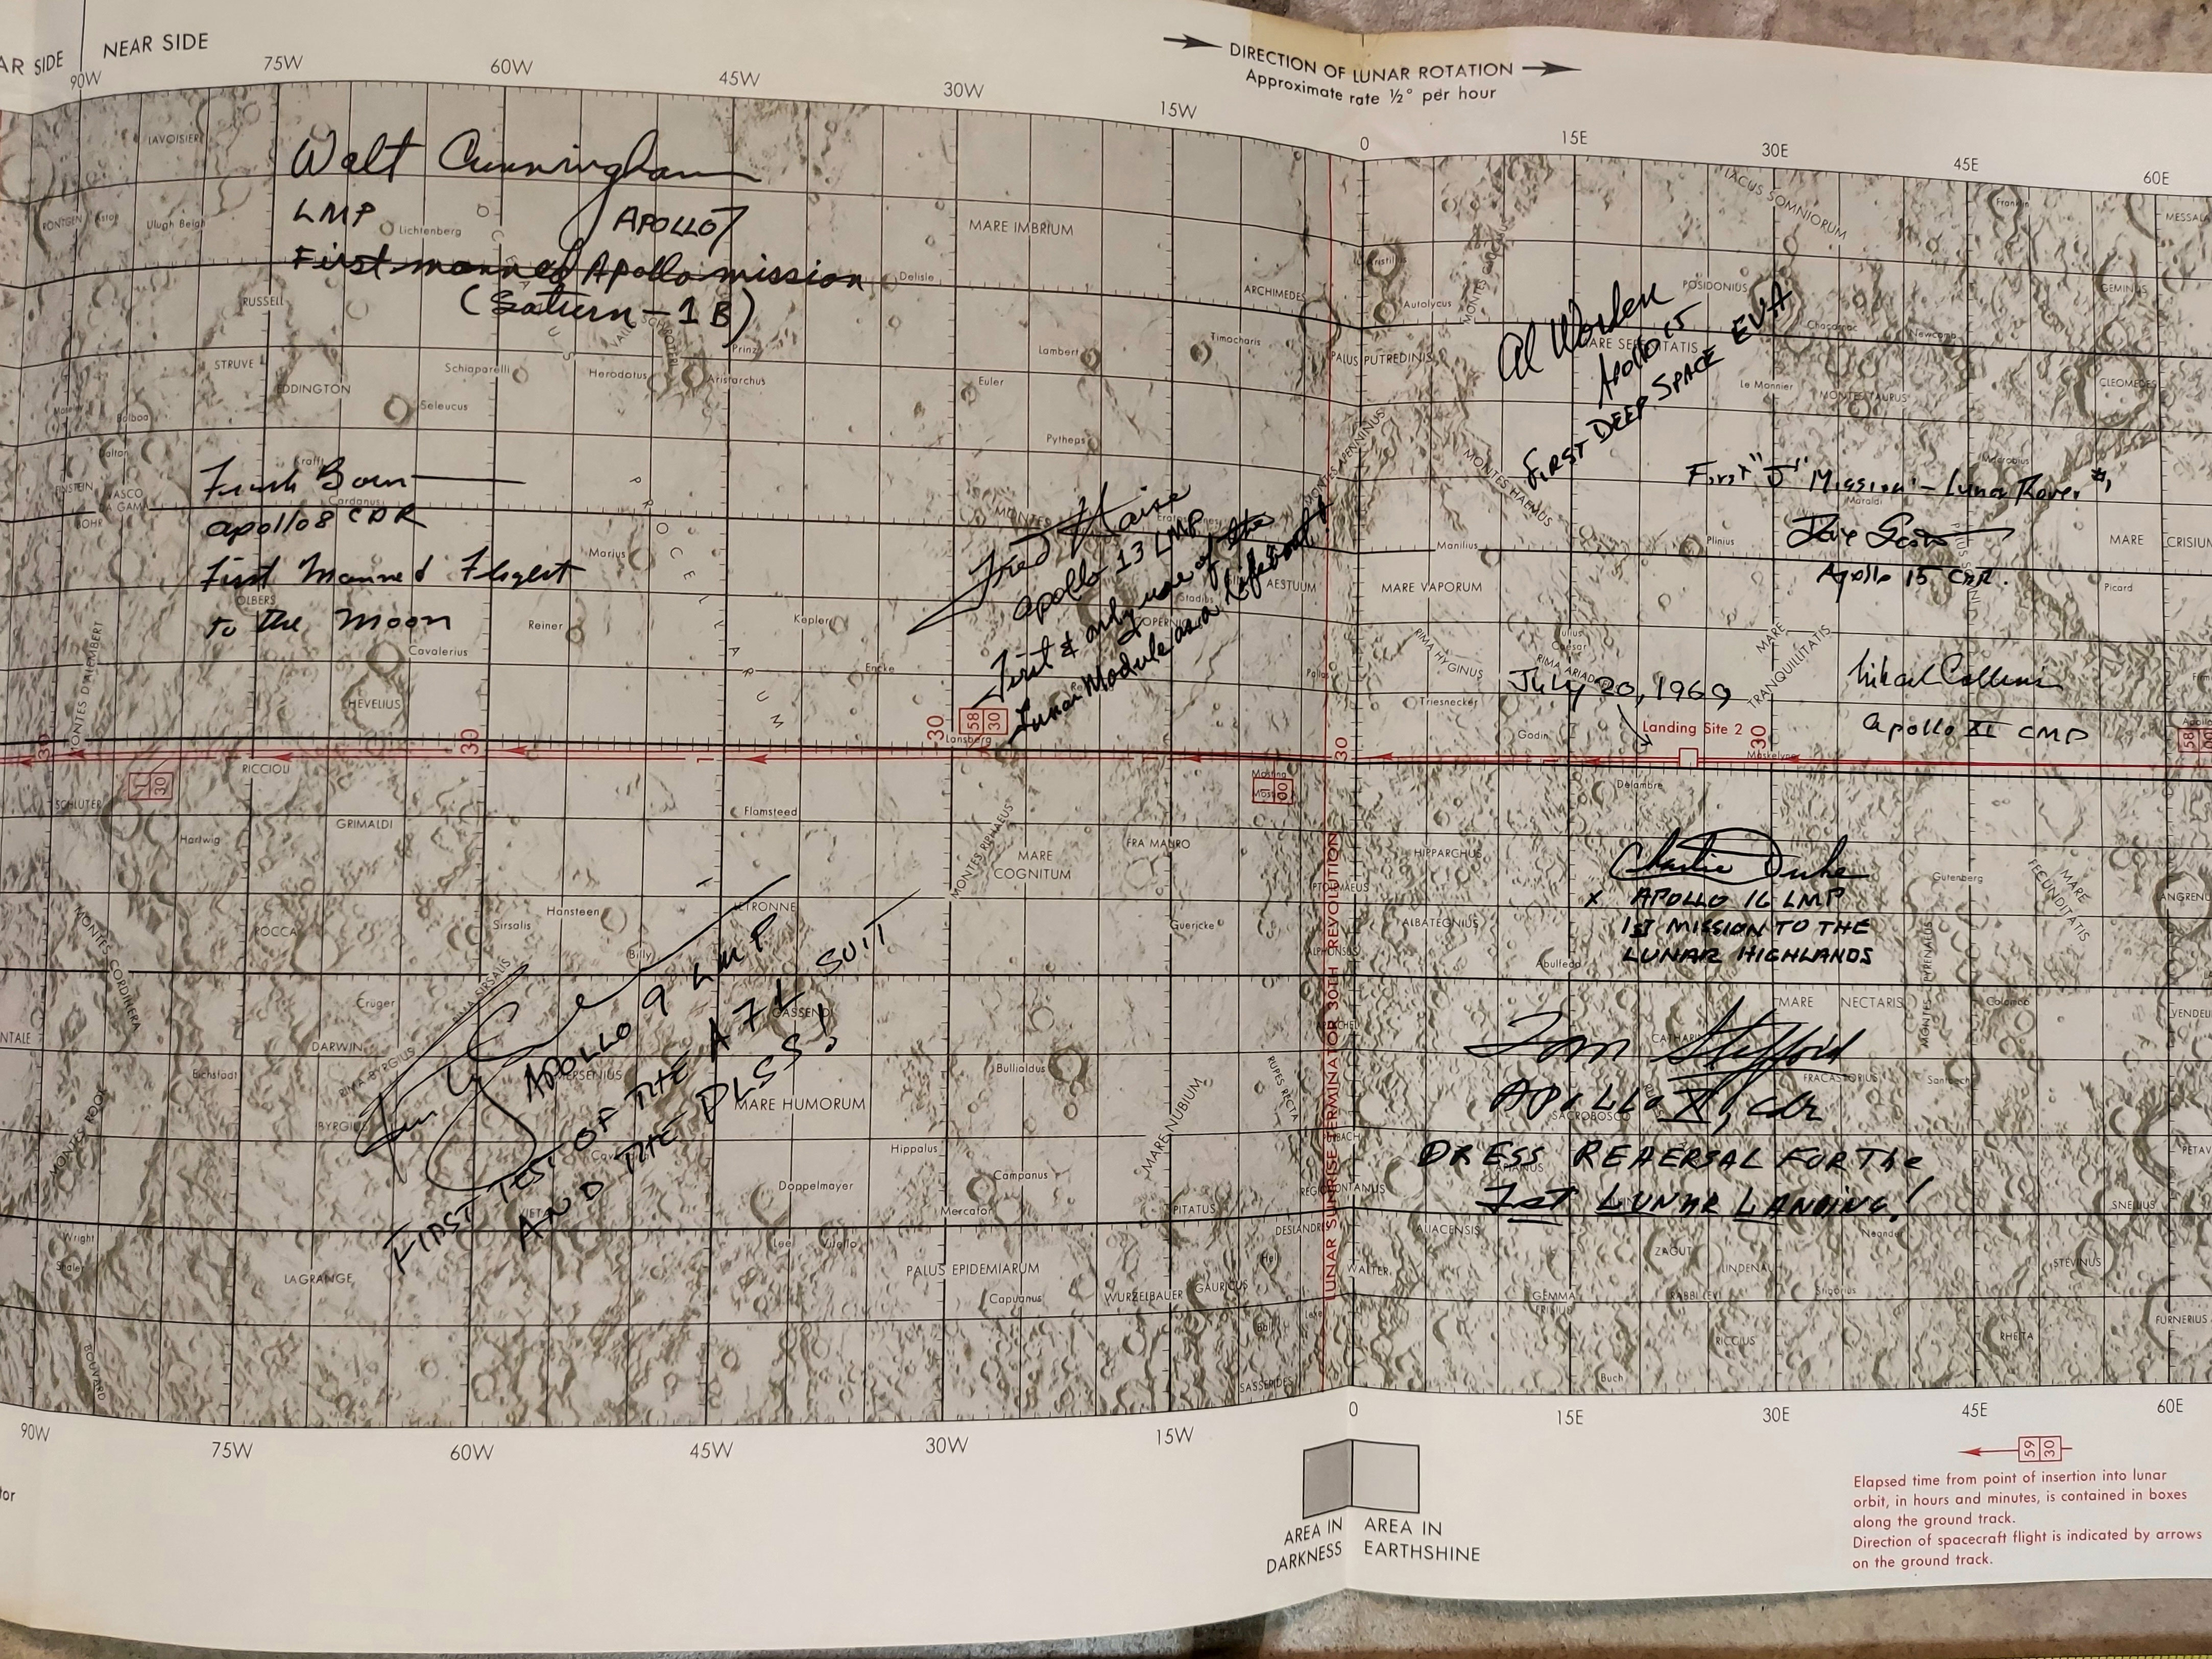 NEAR SIDE
DIRECTION OF LUNAR ROTATION
Approximate rate ½° per hour
90W
75W
60W
45W
30W
15W
0
15E
30E
45E
60E
Walt Cunningham
LMP APOLLO 7
First manned Apollo mission
(Saturn-1B)
Frank Borman
Apollo 8 CDR
First Manned Flight
to the Moon
Fred Haise
Apollo 13 LMP
First & only use of the
Lunar Module as a Lifeboat!
Al Worden
Apollo 15
FIRST DEEP SPACE EVA
First "J" Mission - Lunar Rover #1
Dave Scott
Apollo 15 CDR.
July 20, 1969
Michael Collins
Apollo XI CMP
Landing Site 2
Charlie Duke
X APOLLO 16 LMP
1ST MISSION TO THE
LUNAR HIGHLANDS
Tom Stafford
APOLLO X, cdr
DRESS REAERSAL FOR The
1st LUNAR LANDING!
APOLLO 9 LMP
FIRST TEST OF THE A7L SUIT
AND THE PLSS!
LAVOISIER
RÖNTGEN
Ulugh Beigh
Lichtenberg
MARE IMBRIUM
Delisle
RUSSELL
STRUVE
EDDINGTON
Schiaparelli
Seleucus
Herodotus
Prinz
Aristarchus
Lambert
Timocharis
Euler
Pytheas
ARCHIMEDES
Autolycus
PALUS PUTREDINIS
LACUS SOMNIORUM
POSIDONIUS
Franklin
GEMINUS
Chacornac
Newcomb
Le Monnier
MONTES TAURUS
CLEOMEDES
MONTES HAEMUS
MONTES APENNINUS
Balboa
Dalton
VASCO
DA GAMA
Krafft
Cardanus
OLBERS
Marius
Reiner
Kepler
Encke
Cavalerius
HEVELIUS
PROCELLARUM
MONTES D'ALEMBERT
AESTUUM
Stadius
Manilius
MARE VAPORUM
RIMA HYGINUS
Plinius
Maraldi
MARE
TRANQUILLITATIS
MARE CRISIUM
Picard
Triesnecker
Godin
Maskelyne
Delambre
Lansberg
58 30
30
30
30
30
RICCIOLI
SCHLUTER
Hartwig
GRIMALDI
Flamsteed
MONTES RIPHAEUS
MARE
COGNITUM
FRA MAURO
HIPPARCHUS
PTOLEMAEUS
ALBATEGNIUS
ALPHONSUS
Abulfeda
Gutenberg
MARE
FECUNDITATIS
LUNAR SUNRISE TERMINATOR 30TH REVOLUTION
LETRONNE
Hansteen
Sirsalis
Billy
ROCCA
Guericke
MONTES CORDILLERA
RIMA SIRSALIS
Crüger
GASSENDI
DARWIN
Eichstadt
RIMA BYRGIUS
MERSENIUS
BYRGIUS
MONTES ROOK
MARE HUMORUM
Bullialdus
MARE NUBIUM
RUPES RECTA
MARE NECTARIS
MONTES PYRENAEUS
Colombo
FRACASTORIUS
Santbech
SACROBOSCO
Hippalus
Campanus
Doppelmayer
Mercator
PITATUS
Wright
Shaler
Lee
Vitello
LAGRANGE
PALUS EPIDEMIARUM
Capuanus
WURZELBAUER
GAURICUS
WALTER
ALIACENSIS
ZAGUT
LINDENAU
Neander
SNELLIUS
STEVINUS
GEMMA
FRISIUS
RABBI LEVI
Stiborius
FURNERIUS
RICCIUS
RHEITA
Buch
SASSERIDES
BOUVARD
90W
75W
60W
45W
30W
15W
0
15E
30E
45E
60E
AREA IN
DARKNESS
AREA IN
EARTHSHINE
59 30
Elapsed time from point of insertion into lunar
orbit, in hours and minutes, is contained in boxes
along the ground track.
Direction of spacecraft flight is indicated by arrows
on the ground track.